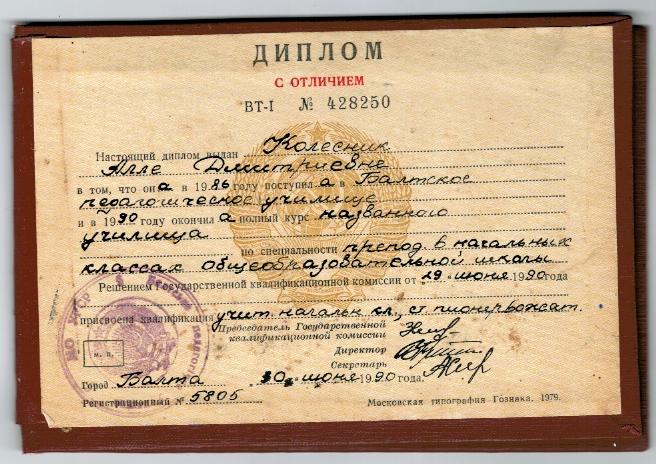 ДИПЛОМ
С ОТЛИЧИЕМ
ВТ-I № 428250
Настоящий диплом выдан Колесник
Алле Дмитриевне
в том, что она в 1986 году поступила в Балтское
педагогическое училище
и в 1990 году окончила полный курс названного
училища
по специальности препод. в начальных
классах общеобразовательной школы
Решением Государственной квалификационной комиссии от „29“ июня 1990 года
присвоена квалификация учит. начальн. кл., ст. пионервожат.
Председатель Государственной
квалификационной комиссии
Директор
Секретарь
М. П.
Город Балта 30 июня 1990 года.
Регистрационный № 5805
Московская типография Гознака. 1979.